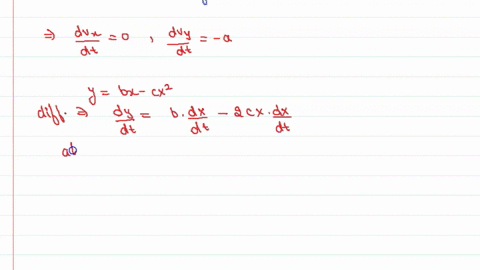 ⇒ dvx/dt = 0 , dvy/dt = -a
y = bx - cx²
diff. ⇒ dy/dt = b. dx/dt - 2cx. dx/dt
at